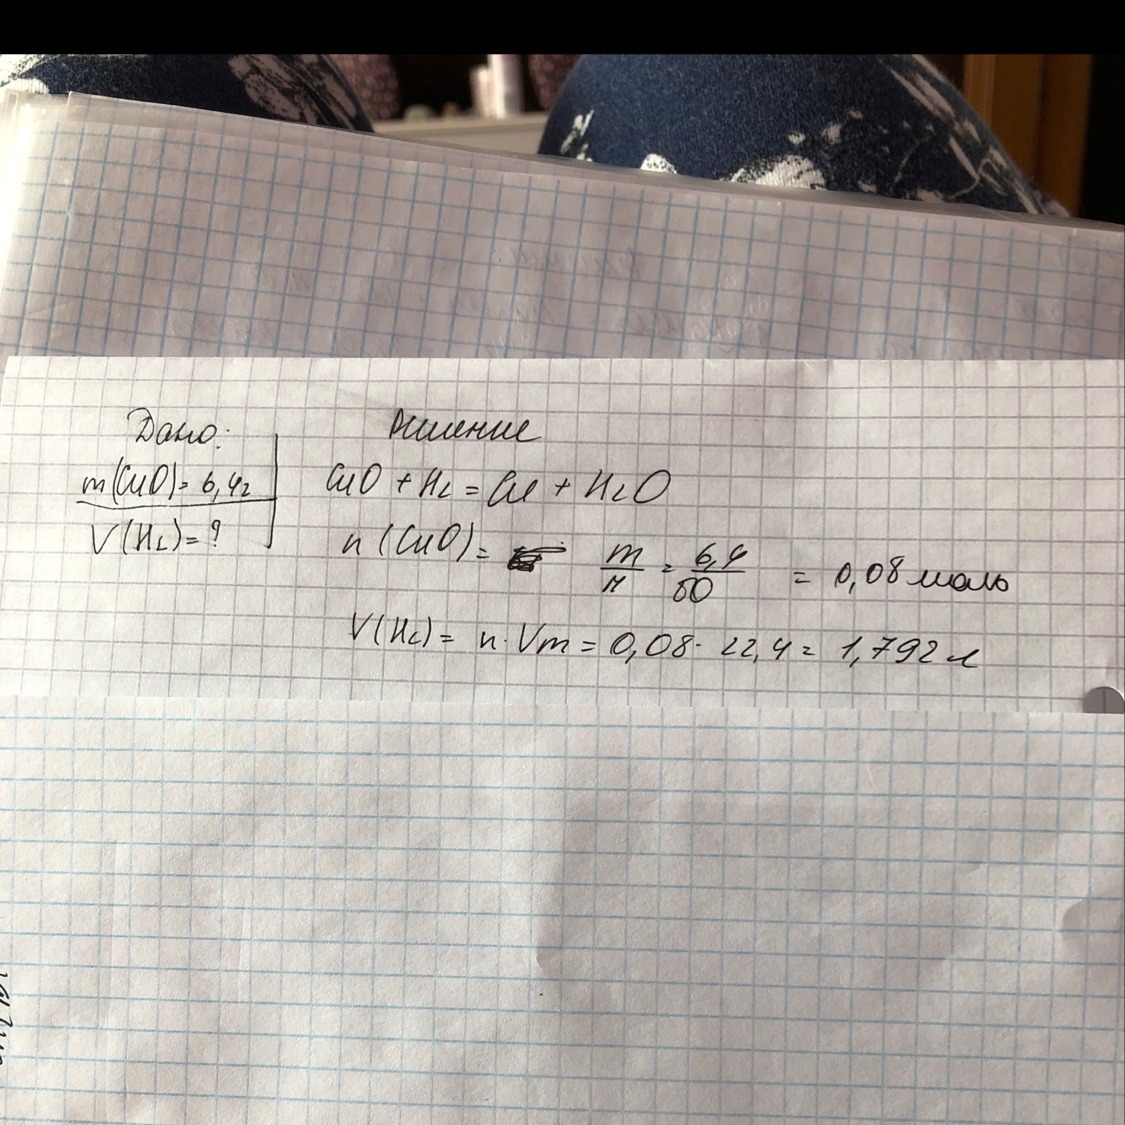 Дано:
m(CuO)=6,4г
V(H2)=?
Решение
CuO + H2 = Cu + H2O
n(CuO)= m/M = 6,4/80 = 0,08 моль
V(H2)= n·Vm = 0,08·22,4 = 1,792 л